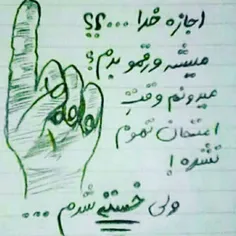 اجازه خدا ...؟؟
میشه ورقمو بدم؟
میدونم وقت
امتحان تموم
نشده!
ولی خسته شدم ...